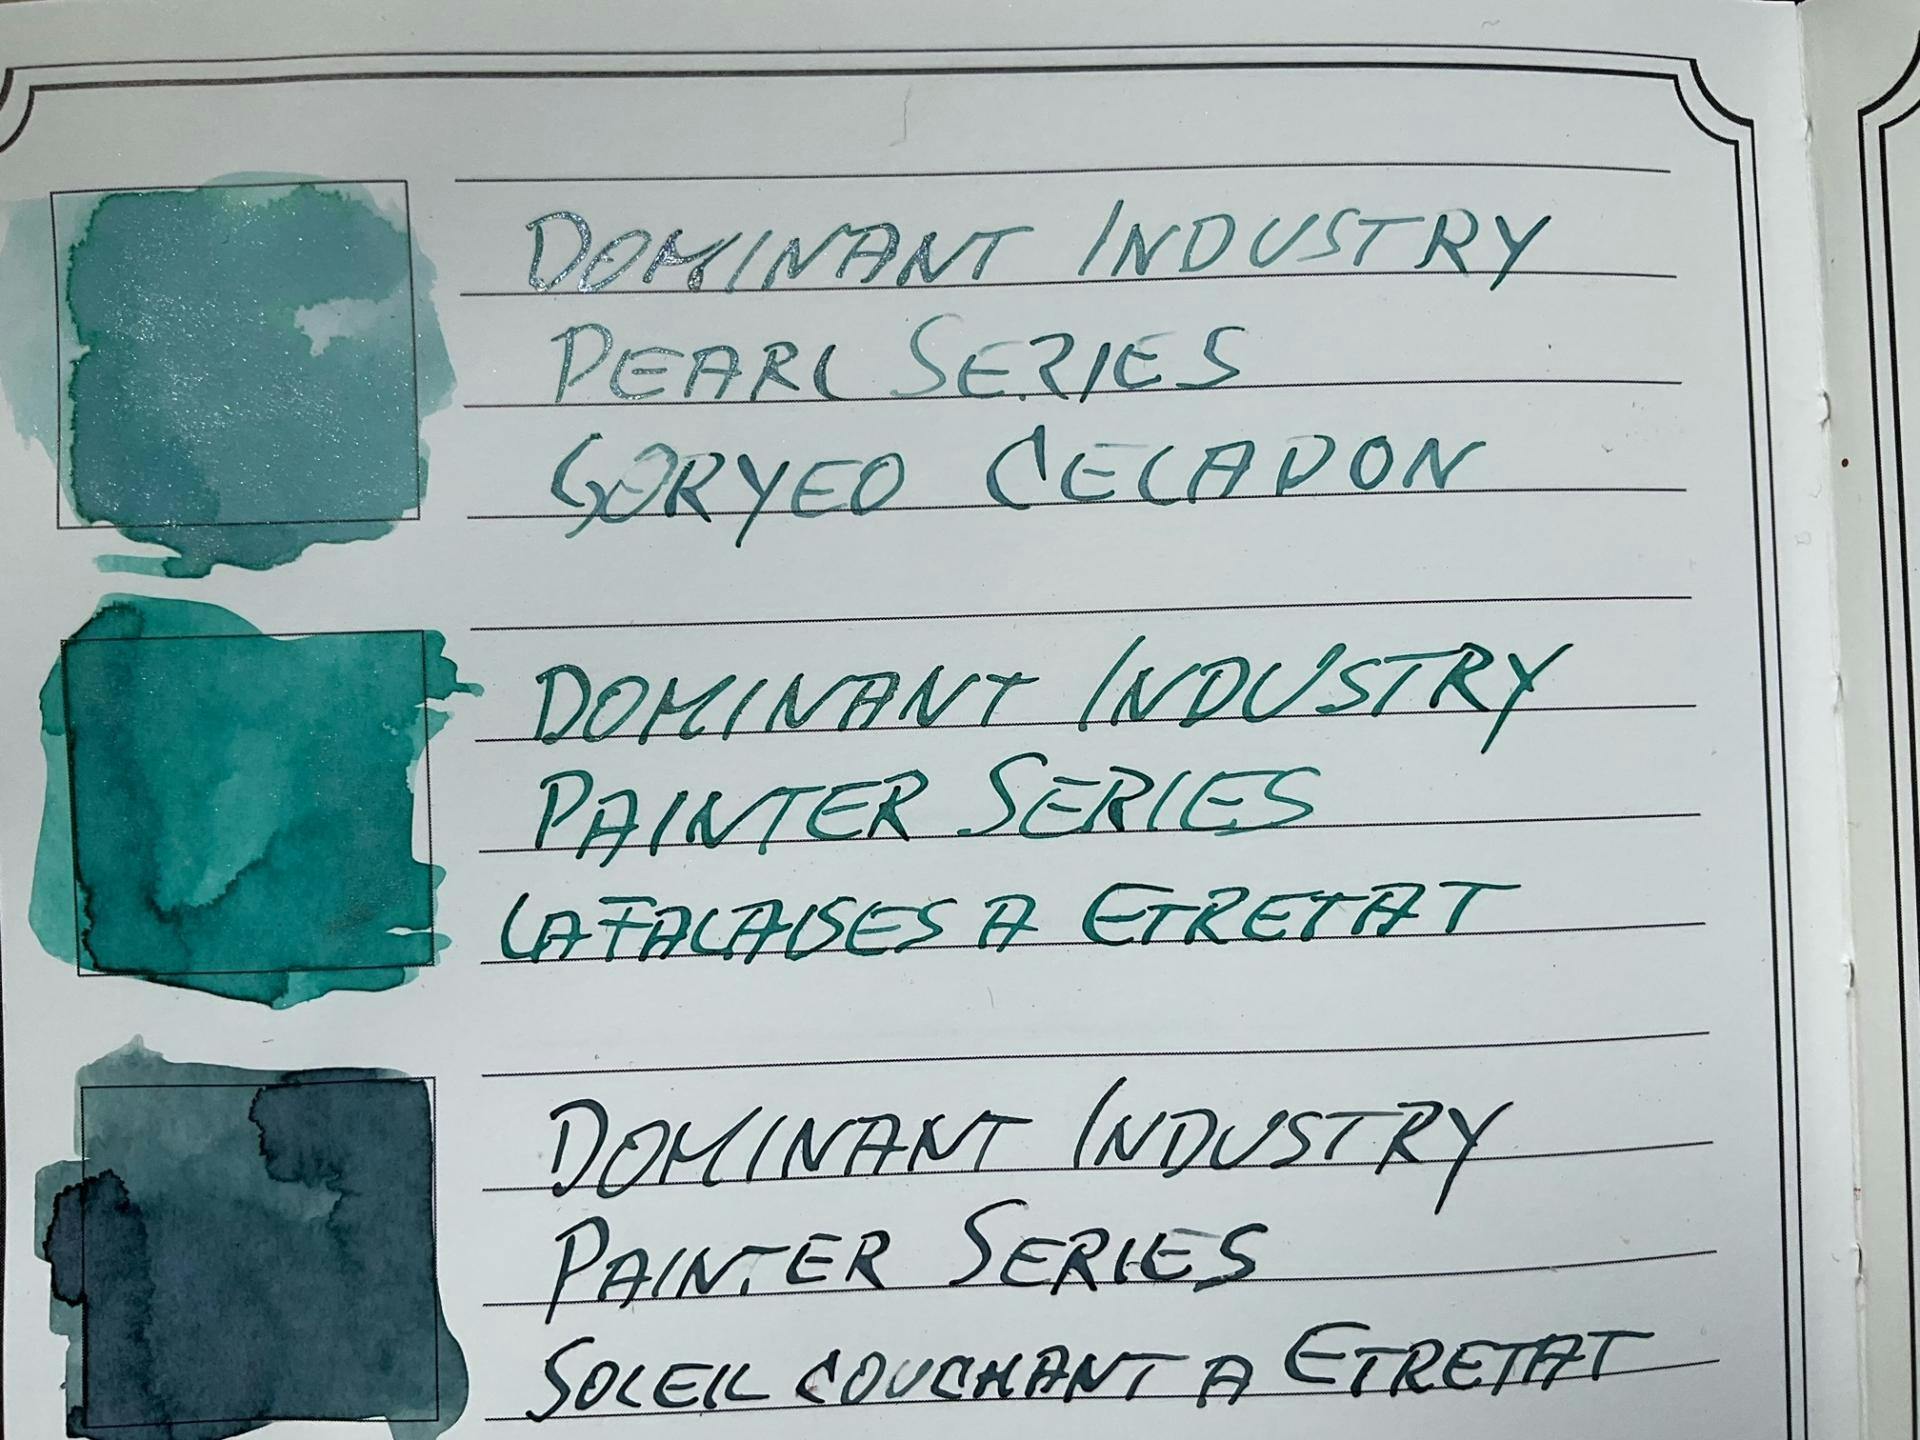 DOMINANT INDUSTRY
PEARL SERIES
GORYEO CELADON
DOMINANT INDUSTRY
PAINTER SERIES
LA FALAISES A ETRETAT
DOMINANT INDUSTRY
PAINTER SERIES
SOLEIL COUCHANT A ETRETAT